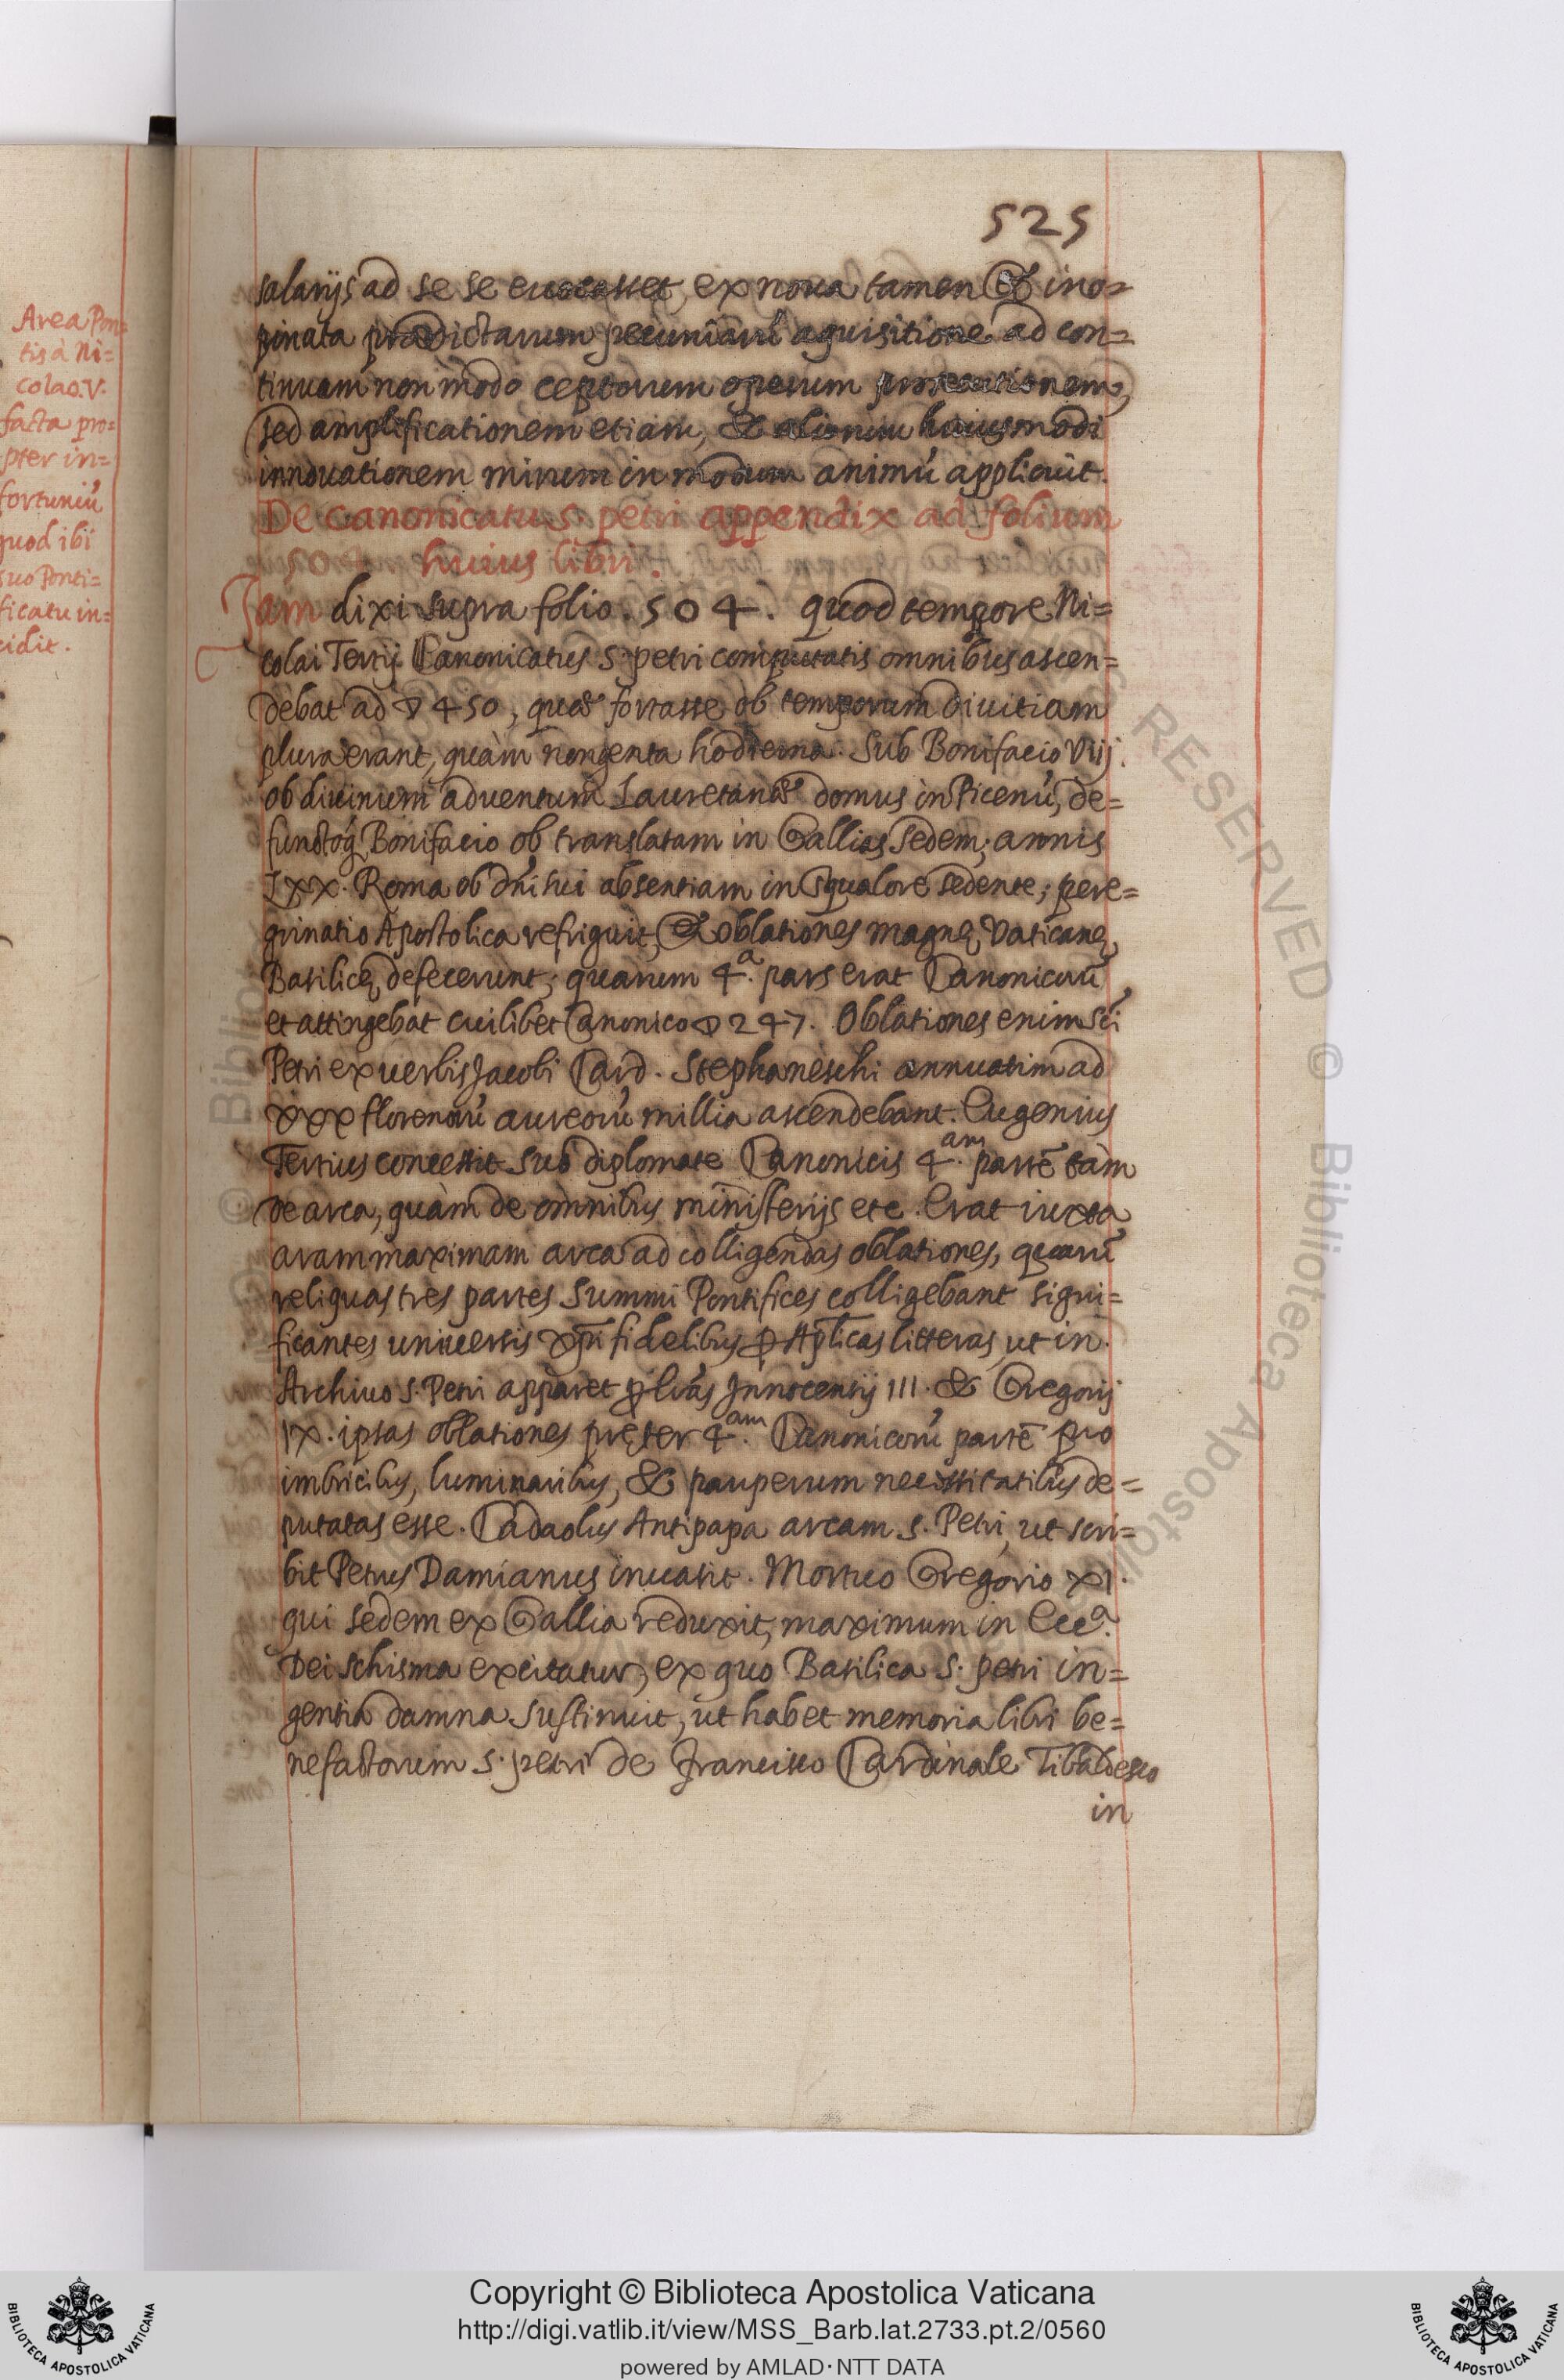 Area Pon=
tis à Ni=
colao. V.
facta pro=
pter in=
fortuniú
quod ibi
suo Ponti=
ficatu in=
cidit.
525
salarijs ad se se euocasset, ex noua tamen et ino=
pinata prædictarum pecuniarú aquisitione ad con=
tinuam non modo ceptorum operum prosecutionem,
sed amplificationem etiam, & aliorum huiusmodi
innouationem mirum in modum animú applicuit.
De canonicatu s. petri appendix ad folium
504. huius libri.
Jam dixi supra folio. 504. quod tempore Ni=
colai Tertij Canonicatus S. petri computatis omnibus ascen=
debat ad ▽ 450, quæ fortasse ob temporum diuitiam
plura erant, quàm nongenta hodierna. Sub Bonifacio Viij.
ob diuinum aduentum Lauretanæ domus in Picenú, de=
functoq́ Bonifacio ob translatam in Gallias Sedem; annis
Lxx. Roma ob dn̄i sui absentiam in squalore sedente; pere=
grinatio Apostolica refriguit, & oblationes magnę Vaticanę
Basilicę defecerunt; quarum 4.ª pars erat Canonicorú
et attingebat cuilibet Canonico ▽ 247. Oblationes enim sc̄i
Petri ex uerbis Jacobi Card. Stephaneschi annuatim ad
xxx florenorú aureorú millia ascendebant. Eugenius
Tertius concessit sub diplomate Canonicis 4.am partē tam
de arca, quàm de omnibus ministerijs etc. Erat iuxta
aram maximam arca ad colligendas oblationes, quarú
reliquas tres partes Summi Pontifices colligebant signi=
ficantes uniuersis xp̄i fidelibus ꝑ Ap̄licas litteras, ut in
Archiuo S. Petri apparet ꝑ lr̄as Innocentij III. & Gregorij
IX. ipsas oblationes pręter 4.am Canonicorú partē pro
imbricibus, luminaribus, & pauperum necessitatibus de=
putatas esse. Cadaolus Antipapa arcam S. Petri, ut scri=
bit Petrus Damianus inuasit. Mortuo Gregorio XI.
qui sedem ex Gallia reduxit, maximum in Ecc.ª
Dei schisma excitatur, ex quo Basilica S. petri in=
gentia damna sustinuit, ut habet memoria libri be=
nefactorum S. petri de Francisco Cardinale Tibaldesco
in
© Biblioteca Apostolica
RESERVED
Copyright © Biblioteca Apostolica Vaticana
http://digi.vatlib.it/view/MSS_Barb.lat.2733.pt.2/0560
powered by AMLAD·NTT DATA
BIBLIOTECA APOSTOLICA VATICANA
BIBLIOTECA APOSTOLICA VATICANA